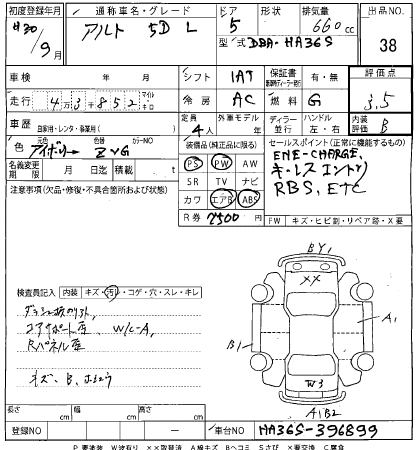 初度登録年月 通称車名・グレード ドア 形状 排気量 出品NO
H30年9月 アルト 5D L 5 660cc 38
型式 DBA-HA36S
車検 年 月 シフト 1AT 保証書 有・無 評価点
走行 4万3千852 マイル キロ 冷房 AC 燃料 G 3.5
車歴 自家用・レンタ・事業用( ) 定員 4人 外車モデル 年 ディーラー 並行 ハンドル 左・右 内装評価 B
色 元色 アイボリー 色替 カラーNO ZVG 装備品(純正品に限る) セールスポイント(正常に機能するもの)
名義変更期限 月 日迄 積載 t PS PW AW ENE-CHARGE,
注意事項(欠品・修復・不具合箇所および状態) SR TV ナビ キーレスエントリー
カワ エアB ABS RBS, ETC
R券 7500円 FW キズ・ヒビ割・リペア跡・X要
検査員記入 内装 キズ・汚レ・コゲ・穴・スレ・キレ
コアサポート歪 W/C-A,
Rパネル歪
キズ、B、
BY1
XX
A1
B1
W3
A1B2
長さ cm 幅 cm 高さ cm
登録NO ー 車台NO HA36S-396899
P 要塗装 W波有り ××取替済 A線キズ Bヘコミ Sさび ×要交換 C腐食